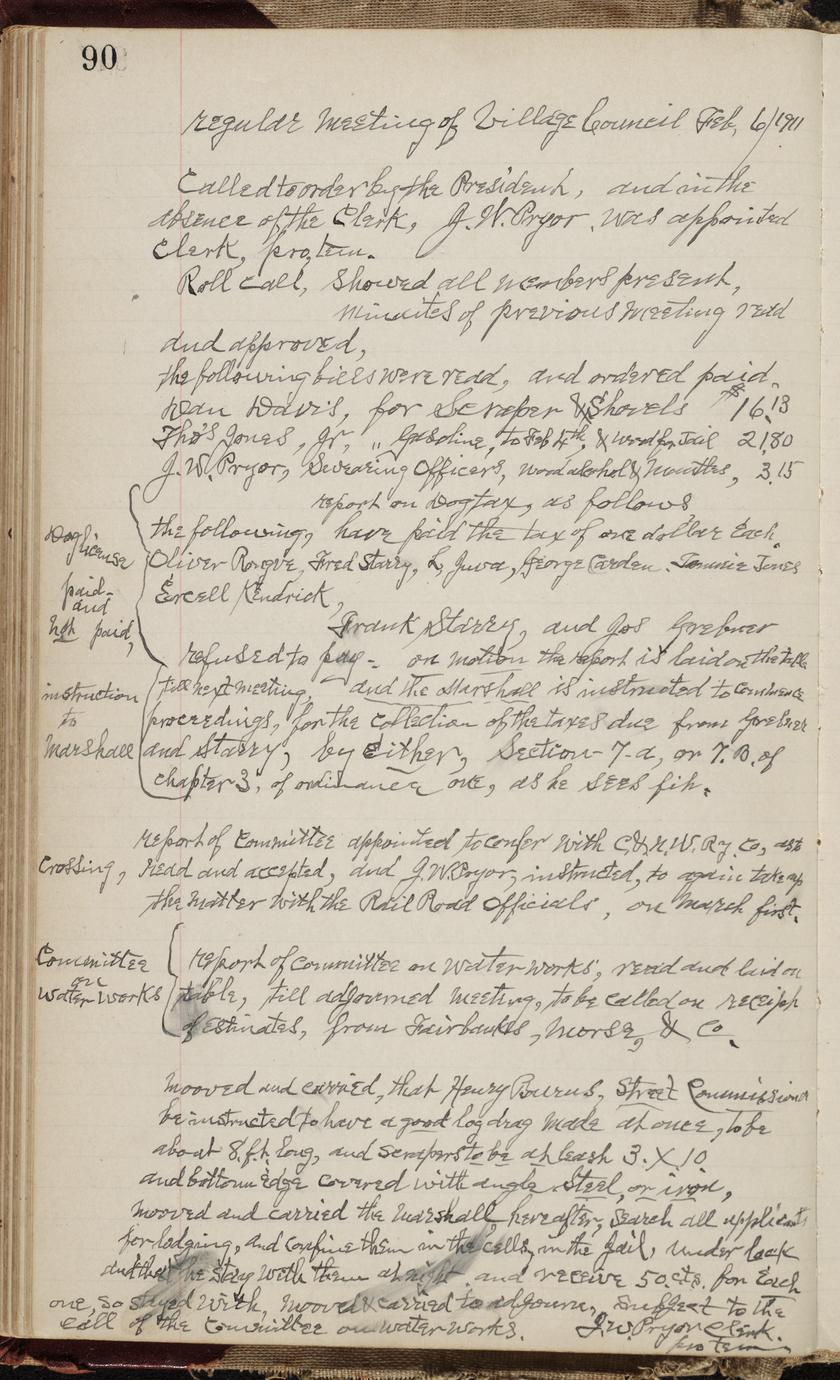 90
regular Meeting of Village Council Feb, 6/1911
Called to order by the President, and in the
absence of the Clerk, J. W. Pryor, was appointed
Clerk, pro, tem.
Roll call, showed all members present,
minuites of previous meeting read
and approved,
the following bills were read, and ordered paid.
Dan Davis, for Scraper & Shovels $16.13
Tho's Jones, Jr, " Gasoline, to Feb 4th, & wood for Jail 21,80
J. W. Pryor, Swearing Officers, wood alcohol & Mantles, 3,15
report on Dogtax, as follows
Dog license
paid-
and
not paid,
the following, have paid the tax of one dollar Each.
Oliver Rongve, Fred Starry, L, Juva, George Carden. Tommie Jones
Ercell Kendrick,
Frank Starry, and Jos Grebner
refused to pay - on motion the report is laid on the table
till next meeting, and the Marshall is instructed to commence
instruction
to
Marshall
proceedings, for the collection of the taxes due from Grebner
and Starry, by Either, Section-7-a, or 7. B. of
chapter 3, of ordinance one, as he sees fit.
report of Committee appointed to confer with C. & N. W. Ry. Co, as to
Crossing, read and accepted, and J. W. Pryor, instructed, to again take up
the matter with the Rail Road Officials, on March first.
Committee
on
water works
report of Committee on water works, read and laid on
table, till adjourned Meeting, to be called on receipt
of estimates, from Fairbanks, Morse, & Co.
Mooved and carried, that Henry Burns, Street Commissioner
be instructed to have a good log drag made at once, to be
about 8. ft. long, and scrapers to be at least 3. X. 10
and bottom Edge covered with angle steel, or iron,
mooved and carried the Marshall, hereafter, Search all applicants
for lodging, and confine them in the cells, in the Jail, under lock
and that he stay with them at night and receive 50.cts. for Each
one, so stayed with, mooved & carried to adjourn, Subject to the
Call of the Committee on water works. J. W. Pryor Clerk.
pro tem